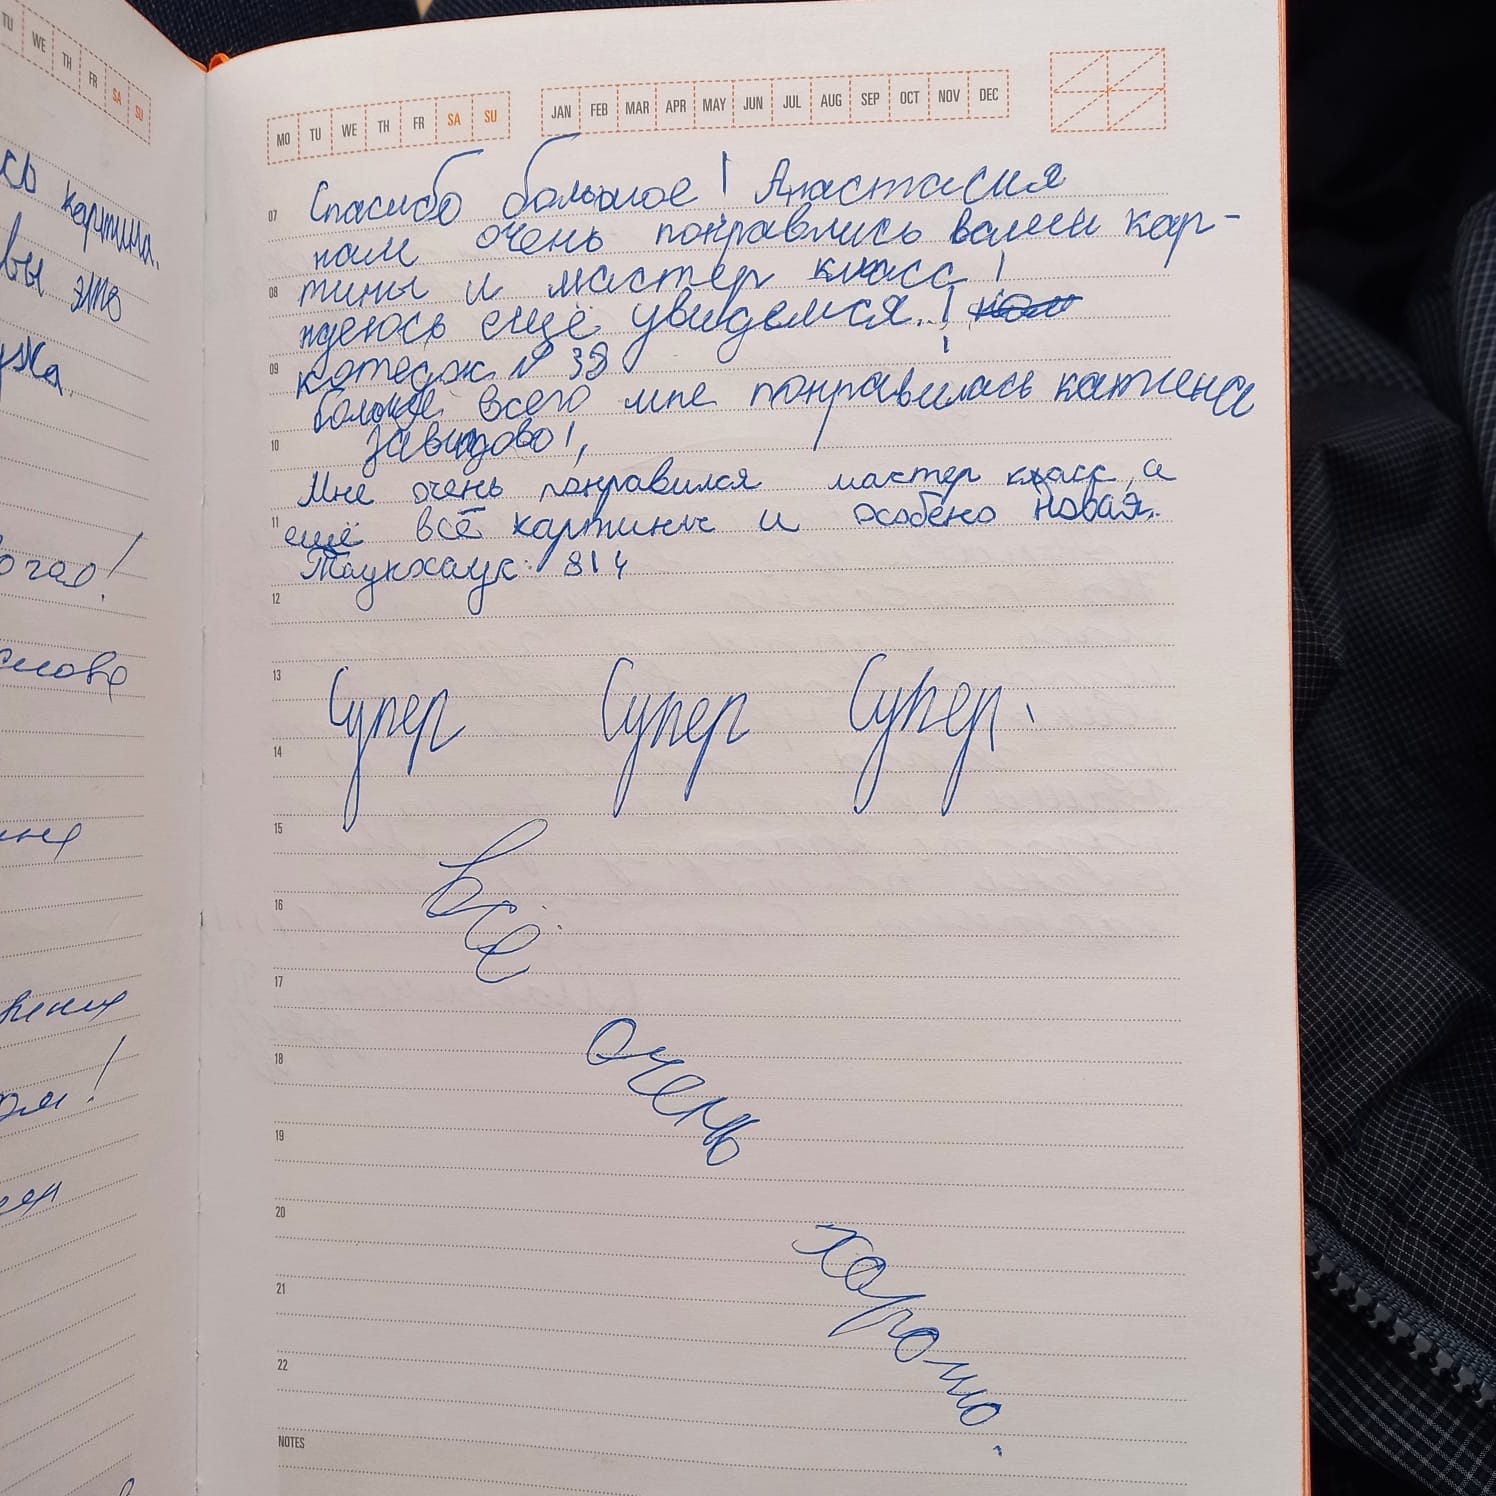 TU WE TH FR SA SU
сь картина.
вы это
ужа.
смова
MO TU WE TH FR SA SU JAN FEB MAR APR MAY JUN JUL AUG SEP OCT NOV DEC
07 Спасибо большое! Анастасия
нам очень понравлись вашеи кар-
08 тины и мастер класс!
ндеюсь ещё увидемся.!
09 котедж № 38
больше всего мне понравилась картена
10 Завидово!,
Мне очень понравился мастер класс, а
11 ещё всё картины и особено новая.
Таунхаус: 814
12
13
Супер Супер Супер.
14
15
Всё
16
17
очень
18
19
20
хорошо.
21
22
NOTES